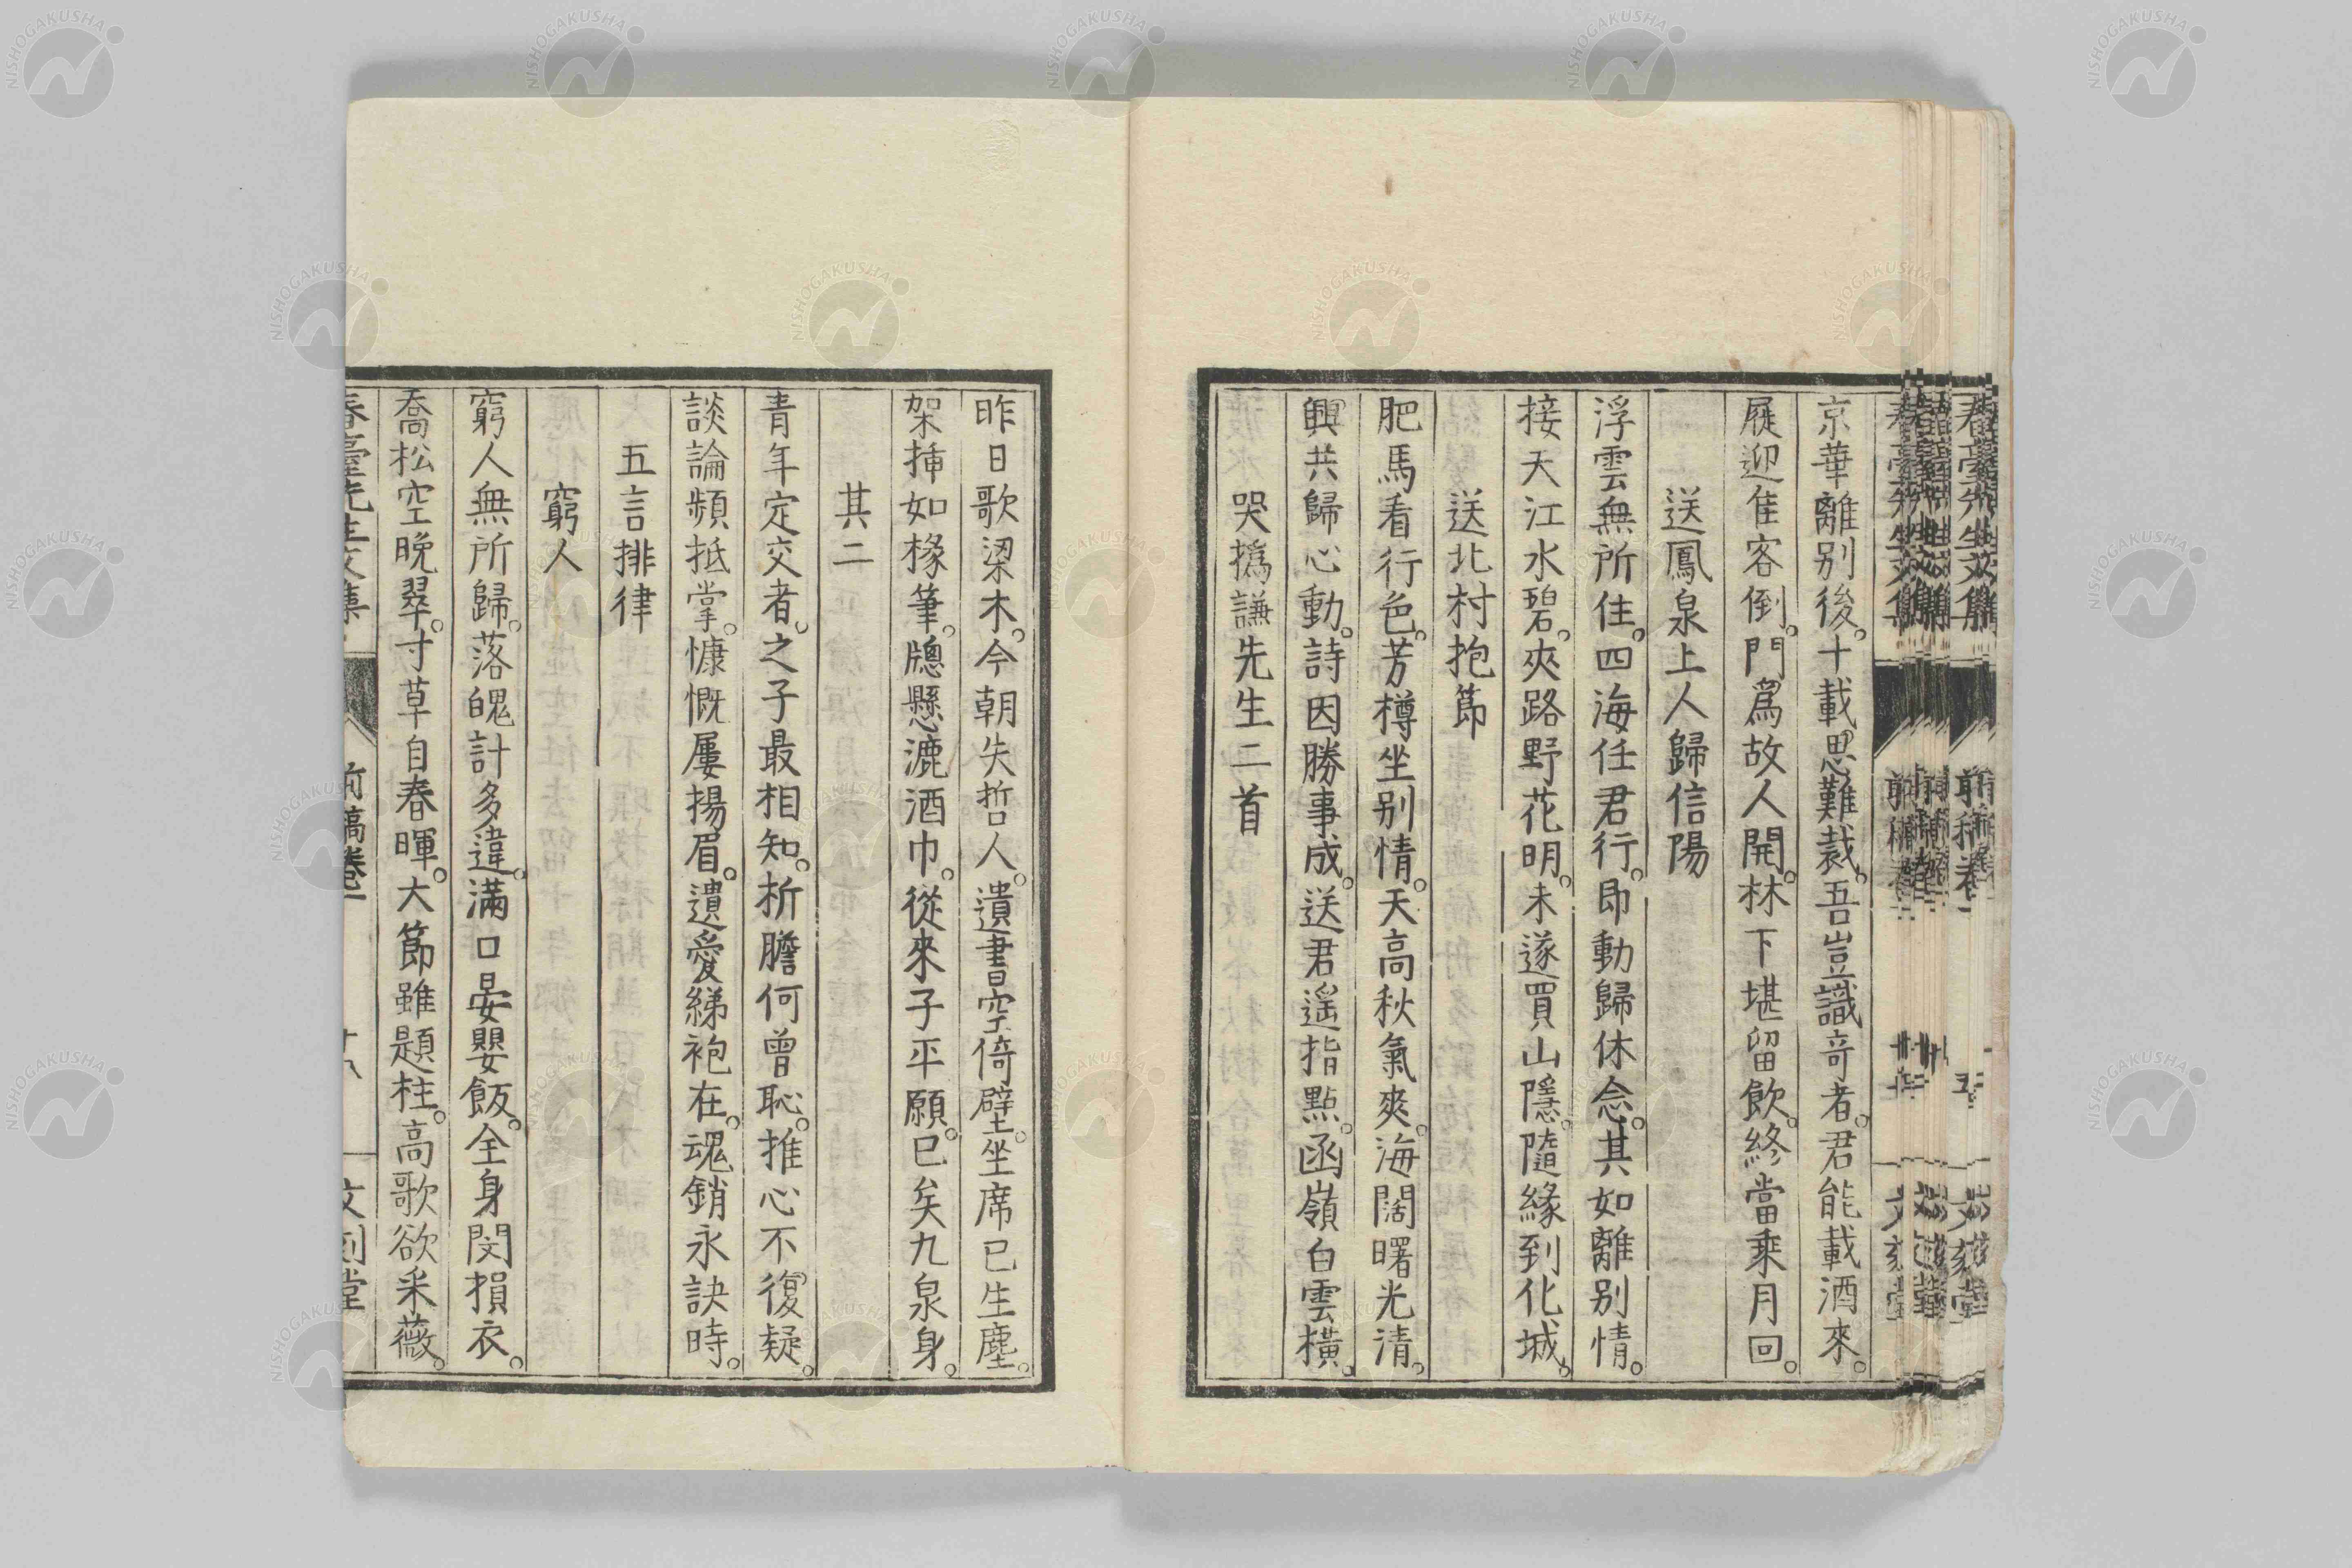 京華離別後。十載思難裁。吾豈識竒者。君能載酒來。
屣迎佳客倒。門爲故人開。林下堪留飲。終當乗月回。
送鳳泉上人歸信陽
浮雲無所住。四海任君行。即動歸休念。其如離別情。
接天江水碧。夾路野花明。未遂買山隱。隨緣到化城。
送北村抱節
肥馬看行色。芳樽坐別情。天高秋氣爽。海闊曙光清。
興共歸心動。詩因勝事成。送君遥指點。函嶺白雲橫。
哭撝謙先生二首
昨日歌梁木。今朝失哲人。遺書空倚壁。坐席已生塵。
架挿如椽筆。牕懸漉酒巾。從來子平願。已矣九泉身。
其二
青年定交者。之子最相知。析膽何曾恥。推心不復疑。
談論頻抵掌。慷慨屢揚眉。遺愛綈袍在。魂銷永訣時。
五言排律
窮人
窮人無所歸。落魄計多違。滿口晏嬰飯。全身閔損衣。
喬松空晩翠。寸草自春暉。大節雖題柱。高歌欲采薇。
春臺先生文集 前稿卷一 十八
NISHOGAKUSHA